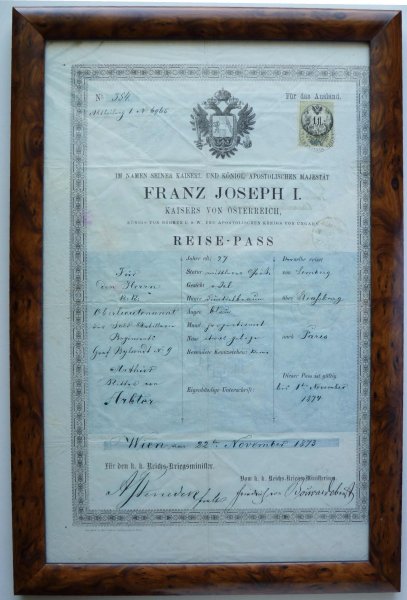 No 384
Für das Ausland.
Abtheilung 1 No 6966
1 Fl.
IM NAMEN SEINER KAISERL. UND KÖNIGL. APOSTOLISCHEN MAJESTÄT
FRANZ JOSEPH I.
KAISERS VON ÖSTERREICH,
KÖNIGS VON BÖHMEN U.S.W. UND APOSTOLISCHEN KÖNIGS VON UNGARN
REISE-PASS
Für
den Herrn
k.k.
Oberlieutenant
des Feld Artillerie
Regiments
Graf Bylandt No 9
Arthur
Ritter von
Arbter
Jahre alt: 27
Statur: mittlere
Gesicht: oval
Haare: dunkelbraun
Augen: blau
Mund: proportionirt
Nase:
Besondere Kennzeichen: keine
Eigenhändige Unterschrift:
Derselbe reiset
von Lemberg
über Straßburg
nach Paris
Dieser Pass ist giltig
bis 1ten November
1874
Wien am 22ten November 1873
Für den k. k. Reichs-Kriegsminister.
Vom k. k. Reichs-Kriegs-Ministerium.